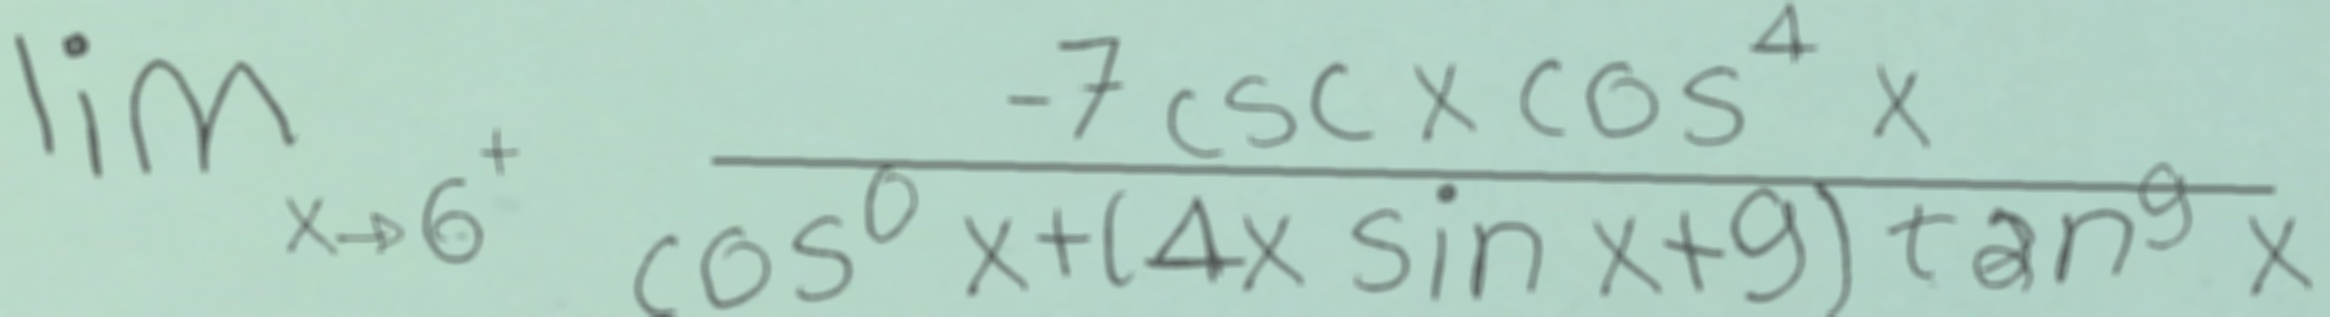 \lim_{x \to 6^+} \frac{-7 \csc x \cos^4 x}{\cos^0 x + (4x \sin x + 9) \tan^9 x}